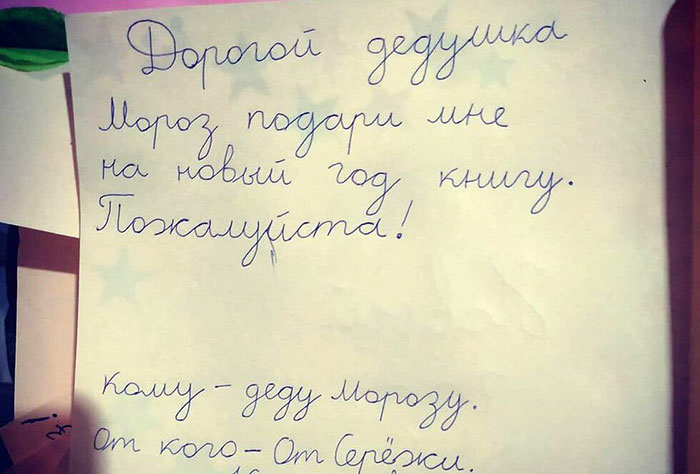 Дорогой дедушка
Мороз подари мне
на новый год книгу.
Пожалуйста!
Кому - деду Морозу.
От кого - От Серёжи.